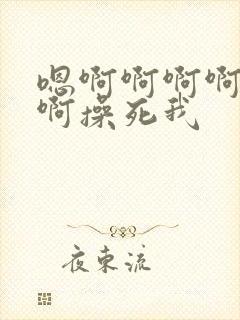 嗯啊啊啊啊
啊操死我
夜束流